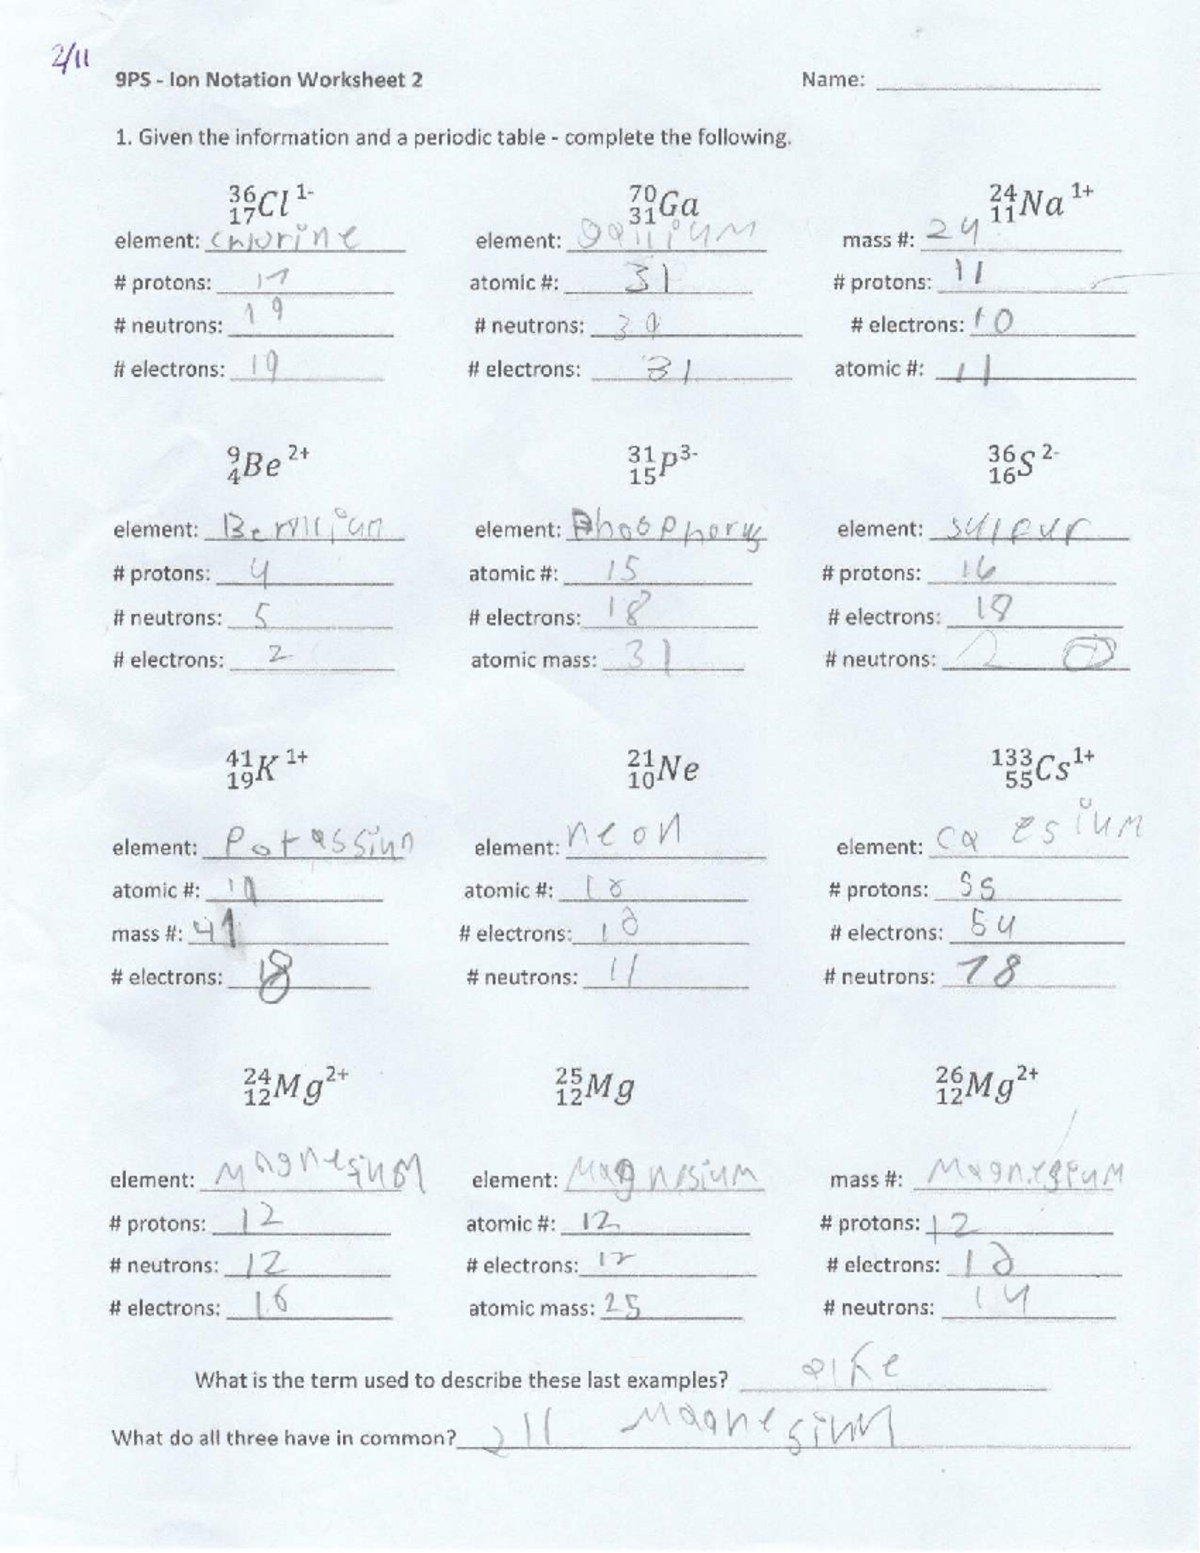 2/11
9PS - Ion Notation Worksheet 2 Name: 
1. Given the information and a periodic table - complete the following.
36 17 Cl 1- 70 31 Ga 24 11 Na 1+
element: Chlorine element: gallium mass #: 24
# protons: 17 atomic #: 31 # protons: 11
# neutrons: 19 # neutrons: 39 # electrons: 10
# electrons: 19 # electrons: 31 atomic #: 11
9 4 Be 2+ 31 15 P 3- 36 16 S 2-
element: Beryllium element: Phosphorus element: sulfur
# protons: 4 atomic #: 15 # protons: 16
# neutrons: 5 # electrons: 18 # electrons: 18
# electrons: 2 atomic mass: 31 # neutrons: 20
41 19 K 1+ 21 10 Ne 133 55 Cs 1+
element: Potassium element: neon element: caesium
atomic #: 19 atomic #: 10 # protons: 55
mass #: 41 # electrons: 10 # electrons: 54
# electrons: 18 # neutrons: 11 # neutrons: 78
24 12 Mg 2+ 25 12 Mg 26 12 Mg 2+
element: Magnesium element: Magnesium mass #: Magnesium
# protons: 12 atomic #: 12 # protons: 12
# neutrons: 12 # electrons: 12 # electrons: 10
# electrons: 10 atomic mass: 25 # neutrons: 14
What is the term used to describe these last examples?
What do all three have in common? all Magnesium